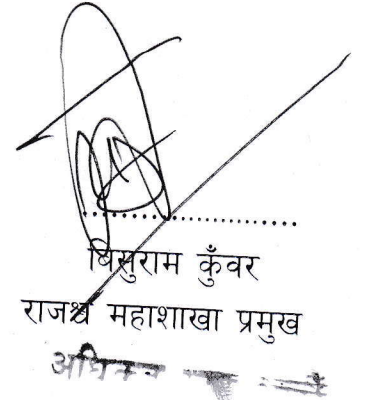 बिसुराम कुँवर
राजश्व महाशाखा प्रमुख